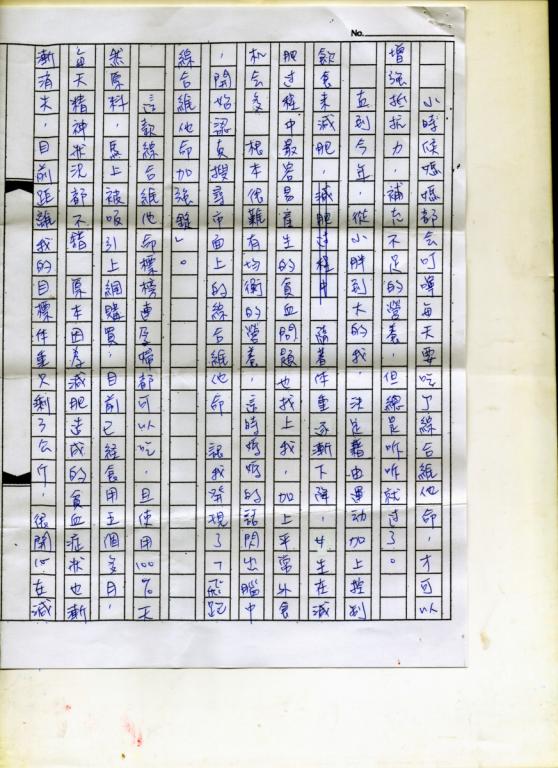 No.
小時候媽媽都會叮嚀每天要吃了綜合維他命，才可以
增強抵抗力，補充不足的營養，但總是咋咋就过了。
直到今年，從小胖到大的我，決定藉由運動加上控制
飲食來減肥，減肥过程中 隨著体重逐漸下降，女生在減
肥过程中最容易產生的貧血問題也找上我，加上平常外食
机会多，根本很難有均衡的營養，這時媽媽的話閃出腦中
，開始認真搜尋市面上的綜合維他命 讓我發現了「
綜合維他命加強錠」。
這款綜合維他命標榜連孕婦都可以吃，且使用100%天
然原料，馬上被吸引上網購買，目前已經食用五個多月，
每天精神狀況都不錯 原本因為減肥造成的貧血症狀也漸
漸消失，目前距離我的目標体重只剩3公斤，很開心在減